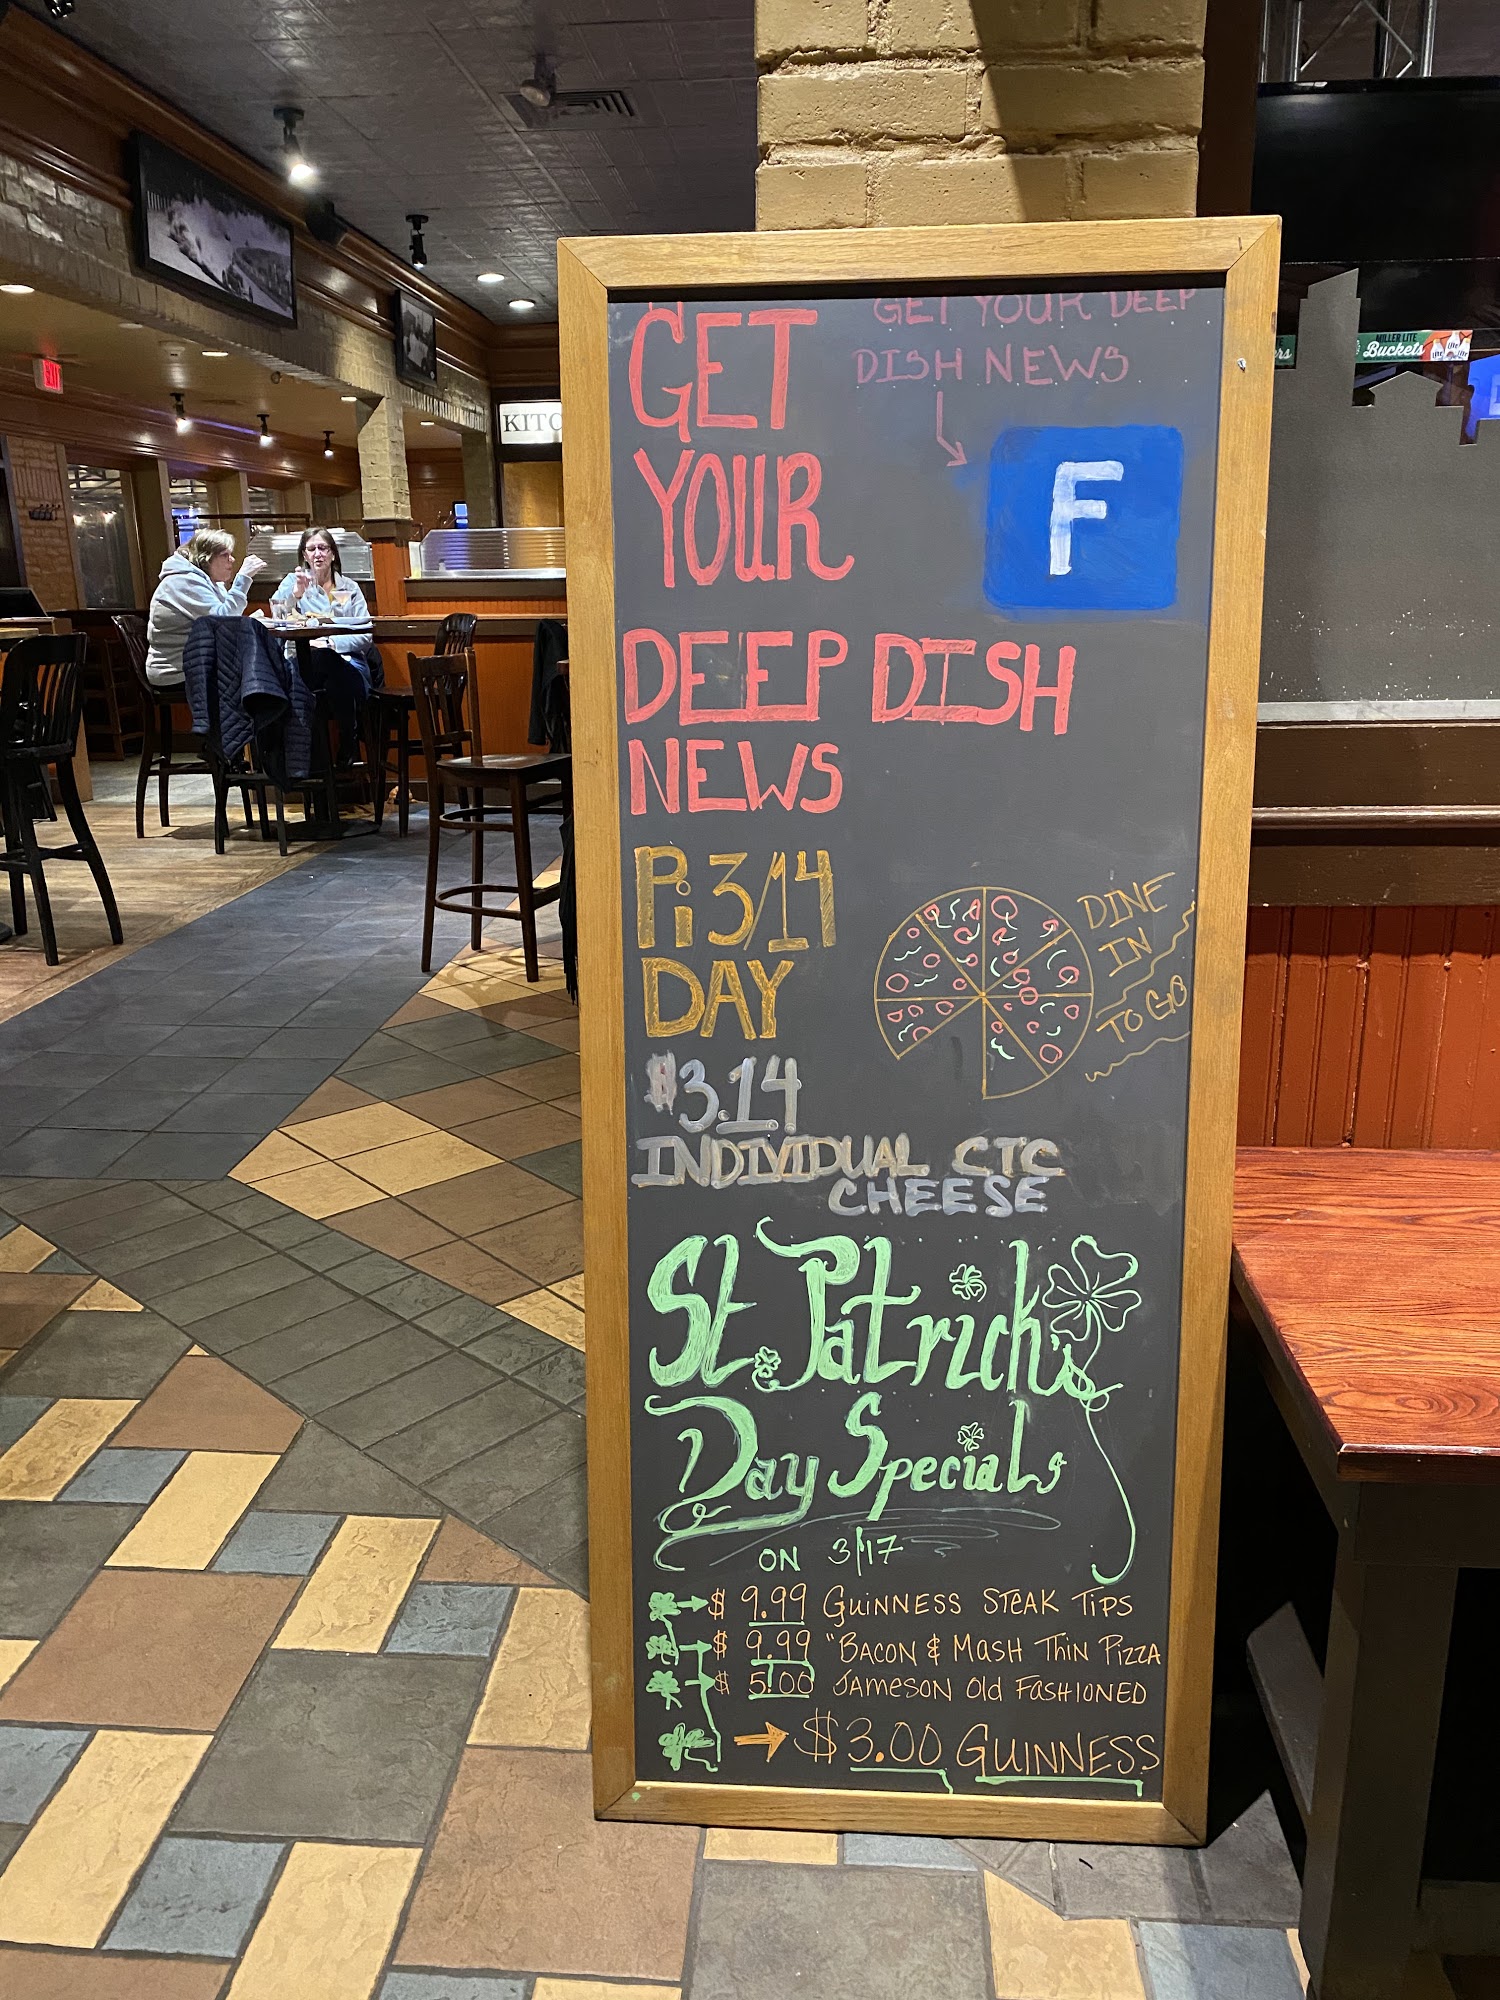 GET
YOUR
DEEP DISH
NEWS
GET YOUR DEEP
DISH NEWS
F
Pi 3/14
DAY
DINE
IN
TO GO
$3.14
INDIVIDUAL CTC
CHEESE
St. Patrick's
Day Specials
ON 3/17
$ 9.99 GUINNESS STEAK TIPS
$ 9.99 "BACON & MASH THIN PIZZA
$ 5.00 JAMESON Old FASHIONED
$3.00 GUINNESS
EXIT
KITC
MILLER LITE
Buckets
ers